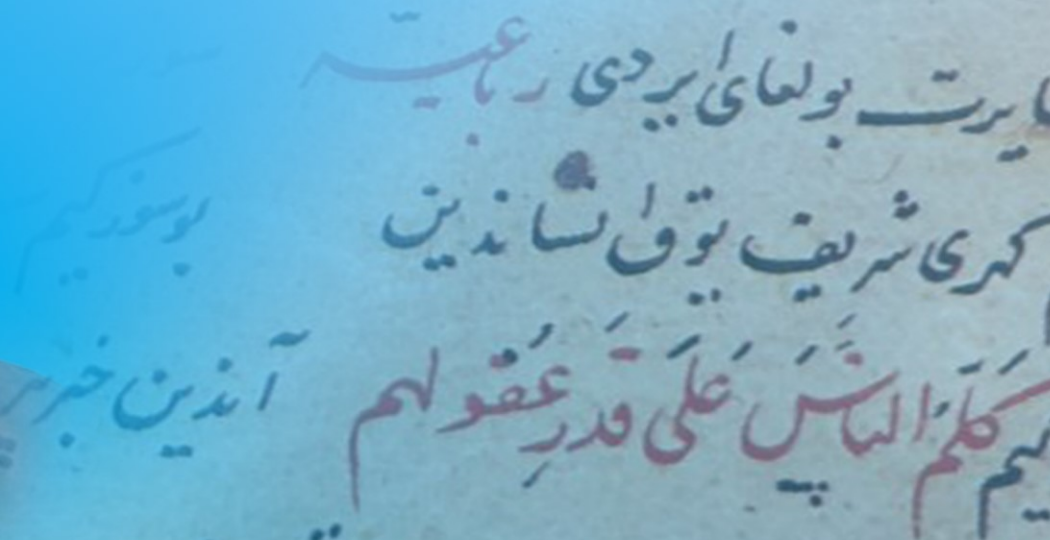 بولغای ایردی رباعیّه
کهری شریف یوق انساندین بو سوز کیم
کَلّم الناسَ عَلَی قَدرِ عُقولهم آندین خبر